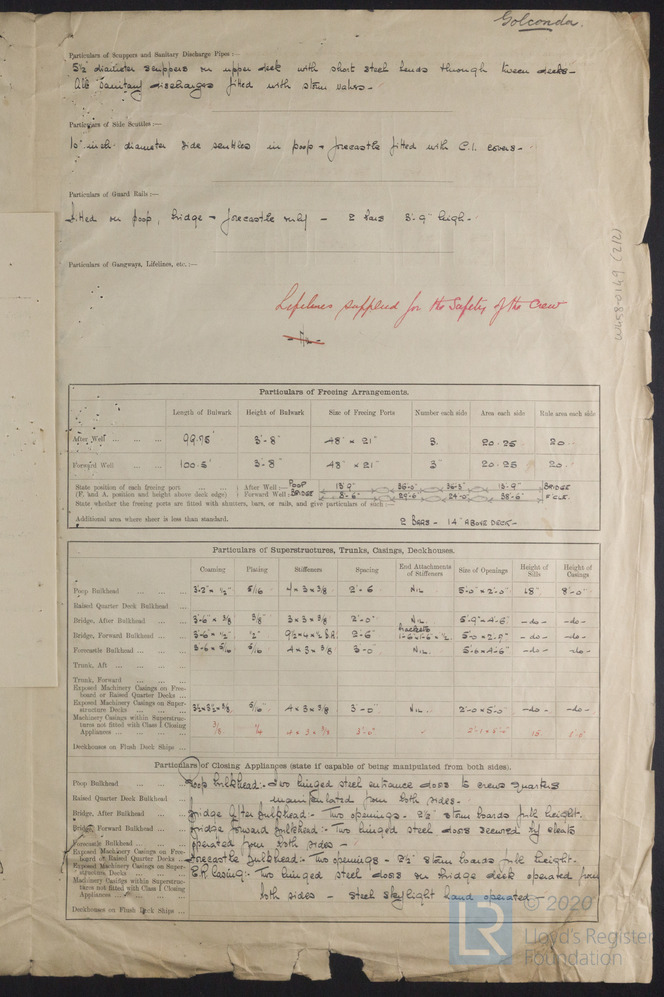 Golconda.
Particulars of Scuppers and Sanitary Discharge Pipes :—
5½ diameter scuppers on upper deck with short steel bends through tween decks—
All Sanitary discharges fitted with storm valves—
Particulars of Side Scuttles :—
10 inch diameter side scuttles in poop & forecastle fitted with C.I. covers—
Particulars of Guard Rails :—
fitted on poop, bridge & forecastle only — 2 bars 3'-9" high—
Particulars of Gangways, Lifelines, etc. :—
Lifelines supplied for the Safety of the Crew
W458-0149 (2/2)
Particulars of Freeing Arrangements.
Length of Bulwark Height of Bulwark Size of Freeing Ports Number each side Area each side Rule area each side
After Well ... ... ... 99.75' 3'-8" 48" × 21" 3 20.25 20
Forward Well ... ... 100.5' 3'-8" 48" × 21" 3 20.25 20
State position of each freeing port ... ... ... ( After Well :— POOP 13'-9" 36-0" 36-3" 13'-9" BRIDGE
(F. and A. position and height above deck edge) ( Forward Well :— BRIDGE 8'-6" 29-6 24-0" 38'-6" F'CLE.
State whether the freeing ports are fitted with shutters, bars, or rails, and give particulars of each :—
Additional area where sheer is less than standard. 2 BARS — 14" ABOVE DECK—
Particulars of Superstructures, Trunks, Casings, Deckhouses.
Coaming Plating Stiffeners Spacing End Attachments of Stiffeners Size of Openings Height of Sills Height of Casings
Poop Bulkhead ... ... ... 3'-2" × ½" 5/16 4 × 3 × 3/8 2'-6 NIL 5'-0" × 2'-0" 18" 8'-0"
Raised Quarter Deck Bulkhead ...
Bridge, After Bulkhead ... ... 3'-6" × 3/8 3/8" 3 × 3 × 3/8 2'-0" NIL 5'-9" × 4'-6" —do— —do—
Bridge, Forward Bulkhead ... 3'-6" × ½" ½" 9½ × 4 × ½ B.A. 2'-6" brackets 1-6 × 1-6 × ½ 5'-0 × 2'-9" —do— —do—
Forecastle Bulkhead ... ... ... 3-6 × 5/16 5/16 4 × 3 × 3/8 3'-0" NIL 5'-6 × 4'-6" —do— —do—
Trunk, Aft ... ... ... ...
Trunk, Forward ... ... ...
Exposed Machinery Casings on Free-
board or Raised Quarter Decks ...
Exposed Machinery Casings on Super-
structure Decks ... ... ... 3½ × 3½ × 3/8 5/16 4 × 3 × 3/8 3'-0" NIL 2'-0 × 5'-0 —do— —do—
Machinery Casings within Superstruc-
tures not fitted with Class I Closing
Appliances ... ... ... ... 4 × 3 × 3/8 3'-0" 15
Deckhouses on Flush Deck Ships ...
Particulars of Closing Appliances (state if capable of being manipulated from both sides).
Poop Bulkhead ... ... ... Poop bulkhead:- Two hinged steel entrance doors to crews quarters
Raised Quarter Deck Bulkhead ... manipulated from both sides-
Bridge, After Bulkhead ... ... Bridge After bulkhead:- Two openings - 2½" storm boards full height.
Bridge, Forward Bulkhead ... Bridge Forward bulkhead:- Two hinged steel doors secured by cleats
Forecastle Bulkhead ... ... ... operated from both sides—
Exposed Machinery Casings on Free-
board or Raised Quarter Decks ... Forecastle bulkhead:- Two openings - 2½" storm boards full height.
Exposed Machinery Casings on Super-
structure Decks ... ... ... E.R. Casing:- Two hinged steel doors on bridge deck operated from
Machinery Casings within Superstruc-
tures not fitted with Class I Closing
Appliances ... ... ... both sides — Steel skylight hand operated—
Deckhouses on Flush Deck Ships ...
LR
© 2020
Lloyd's Register
Foundation